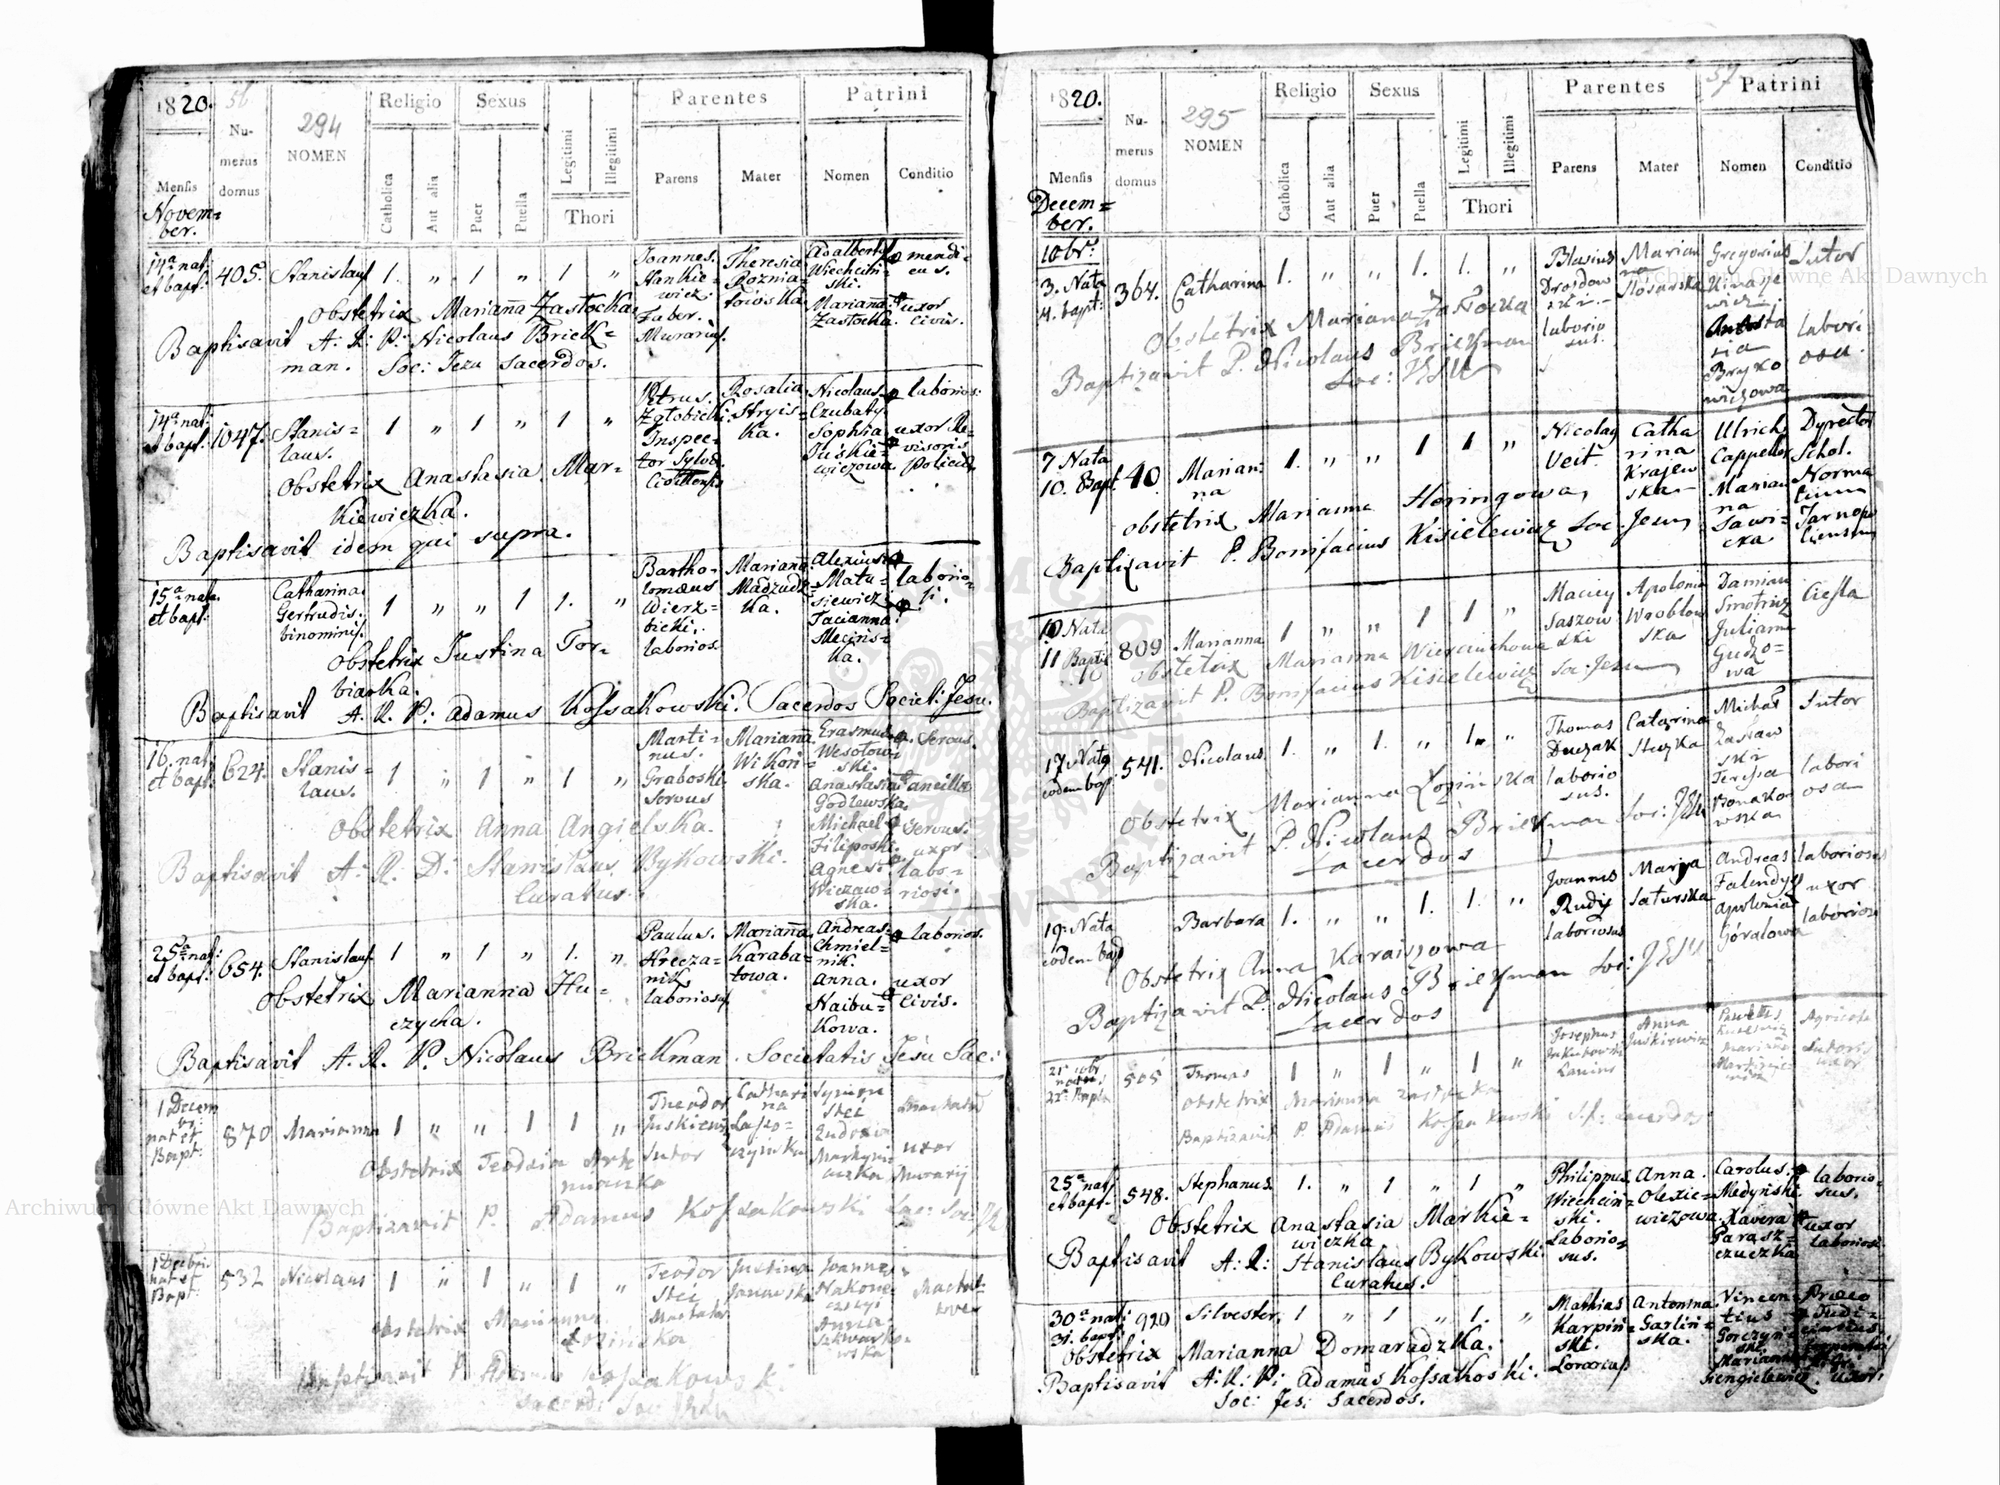 1820.
56
294
Numerus domus
NOMEN
Religio
Sexus
Parentes
Patrini
Mensis
Catholica
Aut alia
Puer
Puella
Legitimi
Illegitimi
Thori
Parens
Mater
Nomen
Conditio
Novem=
ber.
14ª nat:
et bapt:
405.
Stanislaus
1. „ 1 „ 1 „
Joannes.
Hankie=
wicz
Faber.
Murarius.
Theresia
Roznia=
towska
Adalbertus
Wiechciń=
ski.
Marianna
Zastocka.
mendi=
cus.
uxor
civis.
Obstetrix Marianna Zastocka
Baptisavit A: R: P: Nicolaus Brick=
man. Soc: Jezu Sacerdos.
14ª nat:
et bapt:
1047.
Stanis=
laus.
1 „ 1 „ 1 „
Petrus.
Zglobicki
Inspec=
tor Sylva.
Rosalia
Stryis=
ka.
Nicolaus
Czubaty.
Sophia
Juskie=
wiczowa
laborios:
uxor Re=
visoris
Policiæ.
Obstetrix Anastasia Mar=
kiewiczka.
Baptisavit idem qui supra.
15ª nata
et bapt:
Catharina
Gertrudis.
binominis.
1 „ „ 1 1. „
Bartho=
lomæus
Wierz=
bicki.
laborios.
Marianna
Madzudz=
ka.
Alexius
Matu=
siewicz
Tacianna
Mecins=
ka.
laborio=
si.
Obstetrix Justina Tor=
biarka.
Baptisavit A. R. P: Adamus Kossakowski. Sacerdos Societ: Jesu.
16. nat:
et bapt:
624.
Stanis=
laus.
1 „ 1 „ 1 „
Marti=
nus.
Graboski
Servus
Marianna
Wikoń=
ska.
Erasmus
Wesołow=
ski.
Anastasia
Godlewska
Michael
Filiposki.
Agnes
Wiczaw=
ska.
Servus.
ancilla
Servus.
uxor
labo=
riosi.
Obstetrix Anna Angielska.
Baptisavit A: R: D: Stanislaus Bykowski.
Curatus.
25ª nat:
et bapt:
654.
Stanislaus.
1 „ 1 „ 1. „
Paulus.
Hrecza=
nik
laboriosus
Marianna
Karaba=
towa.
Andreas
Chmiel=
nik.
Anna.
Haibu=
kowa.
laborios.
uxor
civis.
Obstetrix Marianna Hu=
czycha.
Baptisavit A. R. P. Nicolaus Brickman. Societatis Jesu Sac:
1 Decem
br:
nat et
Bapt:
870
Marianna
1 „ „ 1 1 „
Theodor
Juskiewicz
Sutor
Cathari
na
Symeon
Stec
uxor
Murarij
Obstetrix Teodzia
Baptizavit P. Adamus Kossakowski Sac: Soc: Je
1 Decbris
nat et
Bapt:
532
Nicolaus
1 „ 1 „ 1 „
Teodor
Stec
Justina
Joannes
Obstetrix Marianna
Baptizavit P. Adamus Kossakowski
Sacerd: Soc: Jesu
1820.
57
295
Numerus domus
NOMEN
Religio
Sexus
Parentes
Patrini
Mensis
Catholica
Aut alia
Puer
Puella
Legitimi
Illegitimi
Thori
Parens
Mater
Nomen
Conditio
Decem=
ber.
10br.
3. Nata
4. bapt:
364.
Catharina
1. „ „ 1. 1. „
Blasius
Drozdow
ski
laborio
sus.
Marian
na
Slosarska
Gregorius
Kinasie
wicz
Anasta
sia
Bryko
wiczowa
Sutor
labori
osa.
Obstetrix Mariana Zastocka
Baptizavit P. Nicolaus Brickman
Soc: JESU
7 Nata
10. Bapt.
40
Marian:
na
1. „ „ 1 1 „
Nicolaus
Veit
Catha
rina
Krajew
ska
Ulrich
Cappeller
Marian
na
Sawi=
cka
Dyrector
Schol.
Norma
lium
Tarnopo
liensium
Obstetrix Marianna Heringowa,
Baptizavit P. Bonifacius Kisielewicz Soc. Jesu
10 Nata
11 Baptiz
809
Marianna
1 „ „ 1 1 „
Maciey
Saszow
ski
Apolonia
Wroblow
ska
Damian
Smotricz
Julianna
Gudzo=
wa
Ciesla
Obstetrix Marianna Wieranchowa
Baptizavit P. Bonifacius Kisielewicz Soc. Jesu
17 Natq
eodem bap.
541.
Nicolaus.
1. „ 1. „ 1. „
Thomas
Duczak
laborio
sus.
Catarina
Steczka
Michał
Zasław
ski
Teressa
Bonako
wska
Sutor
labori
osa
Obstetrix Marianna Łozińska
Baptizavit P. Nicolaus Brickman Soc: JESU
Sacerdos
19. Nata
eodem bap
Barbara
1. „ „ 1. 1. „
Joannes
Rudy
laboriosus
Marya
Saturska
Andreas
Falendysz
Apolonia
Góralowa
laboriosus
uxor
laboriosi
Obstetrix Anna Karaissowa
Baptizavit P. Nicolaus Brickman Soc: JESU
Sacerdos
21ª 10br
natus
22ª Bapt:
505
Thomas
1 „ 1 „ 1 „
Josephus
Jakubowski
Lanius
Anna
Juskiewicz
Agricola
Sutoris
uxor
Obstetrix Marianna Zastocka
Baptizavit P. Adamus Kossakowski S.J. Sacerdos
25ª nat:
et bapt.
548.
Stephanus.
1. „ 1 „ 1 „
Philippus
Wiechciń=
ski.
Laborio=
sus.
Anna.
Olexie=
wiczowa.
Carolus.
Medyński.
Xavera
Parasz=
czuczka
laborio=
sus.
uxor
laboriosi
Obstetrix Anastasia Markie=
wiczka
Baptisavit A: R: Stanislaus Bykowski.
Curatus.
30ª nat:
31. bapt:
920
Silvester,
1 „ 1 „ 1. „
Mathias
Karpiń=
ski.
Lorarius
Antonina.
Garliń=
ska.
Vincen=
tius
Gorczyń=
ski.
Marianna
Siengielewicz.
Præco
Judi=
ciarius
uxor.
Obstetrix Marianna Domaradzka.
Baptisavit A: R: P: Adamus Kossakoski.
Soc: Jes: Sacerdos.
Archiwum Główne Akt Dawnych
Archiwum Główne Akt Dawnych